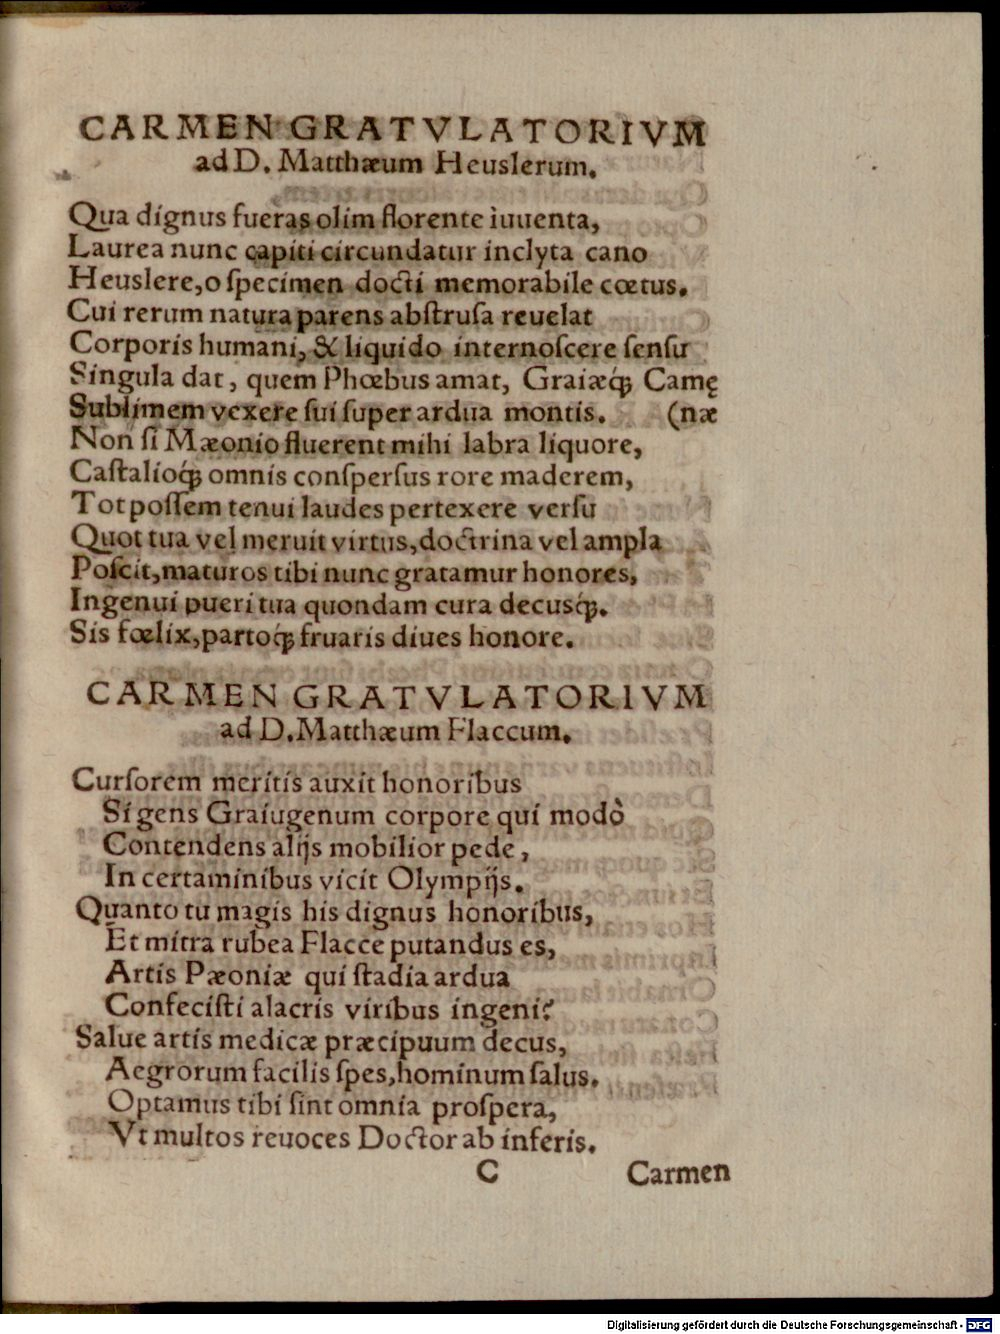 CARMEN GRATVLATORIVM
ad D. Matthæum Heuslerum.
Qua dignus fueras olim florente iuuenta,
Laurea nunc capiti circundatur inclyta cano
Heuslere, o ſpecimen docti memorabile cœtus.
Cui rerum natura parens abſtruſa reuelat
Corporis humani, & liquido internoſcere ſenſu
Singula dat, quem Phœbus amat, Graiæq́; Camę
Sublimem vexere ſui ſuper ardua montis. (næ
Non ſi Mæonio fluerent mihi labra liquore,
Caſtalioq́; omnis conſperſus rore maderem,
Tot poſſem tenui laudes pertexere verſu
Quot tua vel meruit virtus, doctrina vel ampla
Poſcit, maturos tibi nunc gratamur honores,
Ingenui pueri tua quondam cura decusq́;.
Sis fœlix, partoq́; fruaris diues honore.
CARMEN GRATVLATORIVM
ad D. Matthæum Flaccum.
Curſorem meritis auxit honoribus
Si gens Graiugenum corpore qui modò
Contendens alijs mobilior pede,
In certaminibus vicit Olympijs.
Quanto tu magis his dignus honoribus,
Et mitra rubea Flacce putandus es,
Artis Pæoniæ qui ſtadia ardua
Confeciſti alacris viribus ingeni?
Salue artis medicæ præcipuum decus,
Aegrorum facilis ſpes, hominum ſalus.
Optamus tibi ſint omnia proſpera,
Vt multos reuoces Doctor ab inferis.
C Carmen
Digitalisierung gefördert durch die Deutsche Forschungsgemeinschaft - DFG